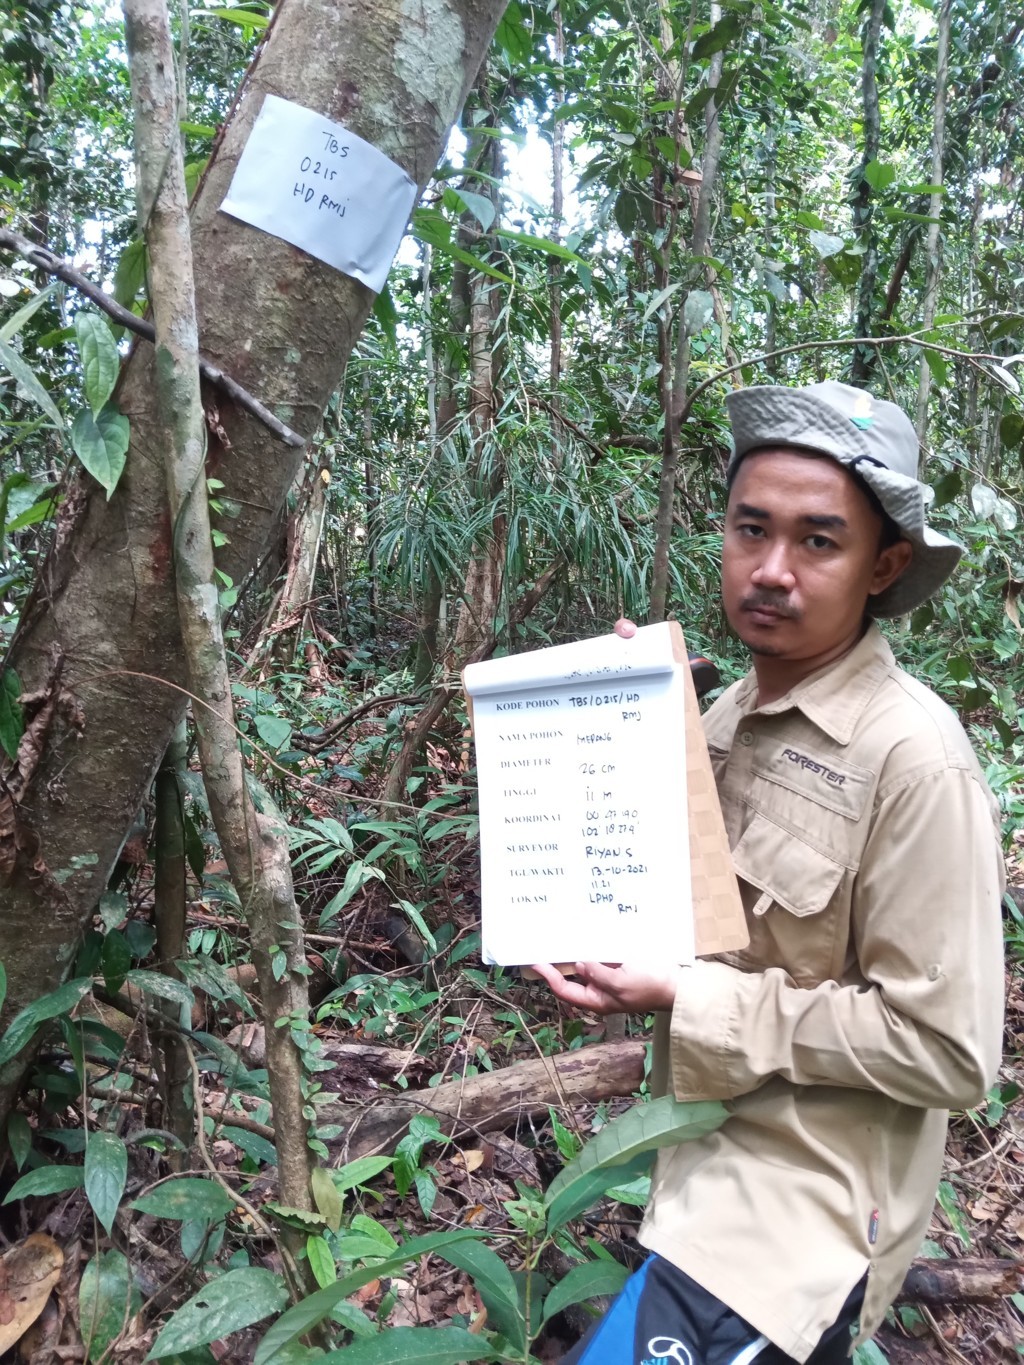 TBS
0215
HD RMJ
KODE POHON TBS/0215/HD
RMJ
NAMA POHON MEDANG
DIAMETER 26 CM
TINGGI 11 M
KOORDINAT
102° 18' 27.9"
SURVEYOR RIYAN S
TGL/WAKTU 13-10-2021
11.21
LOKASI LPHD
RMJ
FORESTER